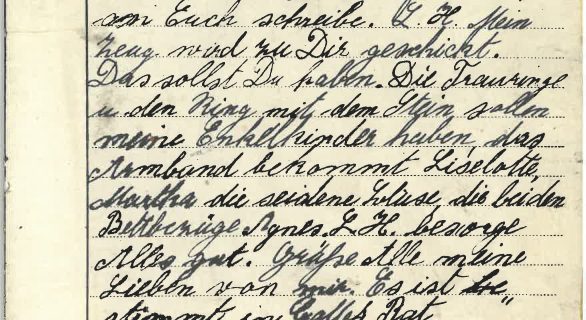 an Euch schreibe. L. H. Mein
Zeug wird zu Dir geschickt.
Das sollst Du haben. Die Trauringe
u. den Ring mit dem Stein sollen
meine Enkelkinder haben, das
Armband bekommt Liselotte,
Martha die seidene Bluse, die beiden
Bettbezüge Agnes. L. H. besorge
Alles gut. Grüße Alle meine
Lieben von mir. Es ist be„
stimmt in Gottes Rat